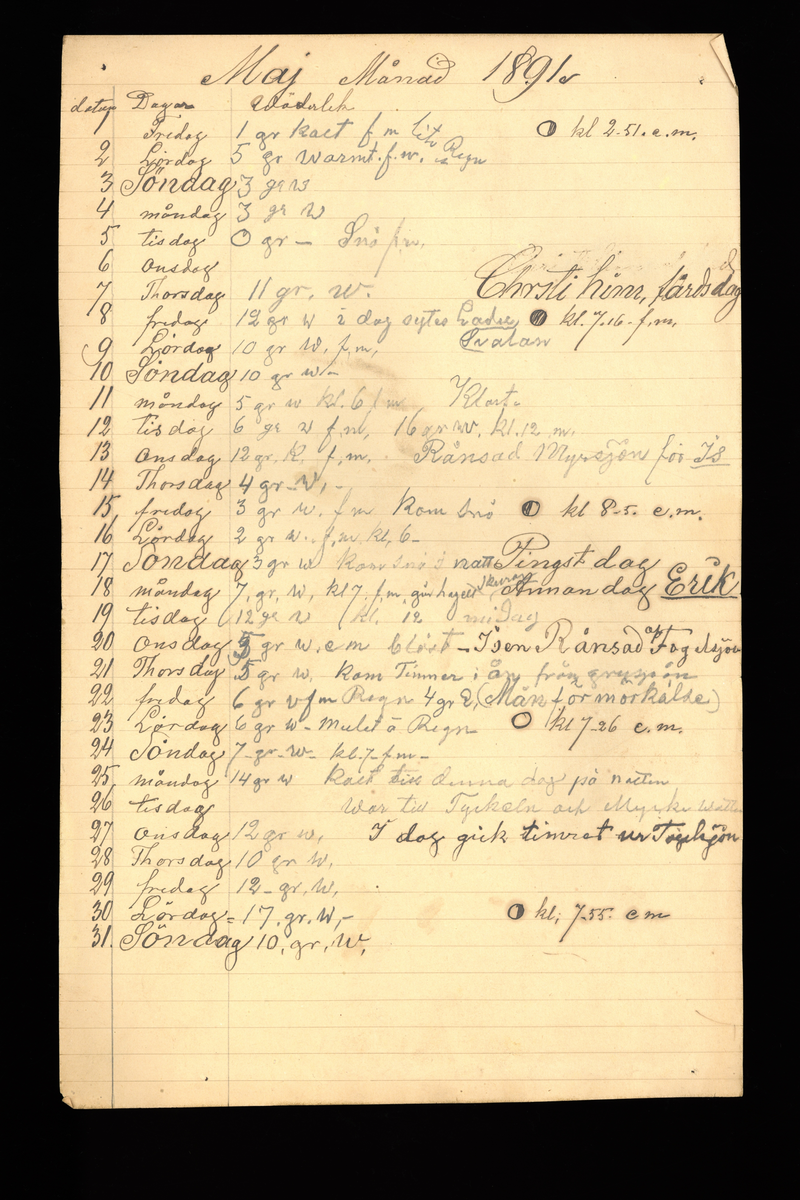 Maj Månad 1891
datum Dagar Väderlek
1 Fredag 1 gr kalt f m litet Regn kl 2-51. e.m.
2 Lördag 5 gr warmt. f.m.
3 Söndag 3 gr w
4 måndag 3 gr w
5 tisdag 0 gr — Snö f.m.
6 onsdag
7 Thorsdag 11 gr. w. Christi himmelfärdsdag
8 fredag 12 gr w i dag syntes Ladu Svalan kl. 7.16- f.m.
9 Lördag 10 gr w. f.m.
10 Söndag 10 gr w.-
11 måndag 5 gr w kl. 6 f m Klart.
12 tisdag 6 gr w f.m, 16 gr w. kl. 12 m.
13 onsdag 12 gr. K. f.m. Rånsad Myrsjön för Is
14 Thorsdag 4 gr-w.-
15 fredag 3 gr w. f m kom snö kl 8-5. e.m.
16 Lördag 2 gr w. f.m. kl. 6-
17 Söndag 3 gr w kom snö i natt Pingstdag
18 måndag 7, gr, w, kl 7 f.m. Annandag Erik
19 tisdag 12 gr w kl. 12 midag
20 onsdag 5 gr w. e m blåst - Isen Rånsad af Fogelsjön
21 Thorsdag 5 gr w. kom Timmer i ån från
22 fredag 6 gr w f m Regn 4 gr (Mån förmörkälse)
23 Lördag 6 gr w- mulet å Regn kl 7-26 e.m.
24 Söndag 7-gr-w- kl.7-f.m-
25 måndag 14 gr w kalt till denna dag på natten
26 tisdag War till Tyckeln och Mycke watten
27 onsdag 12 gr w, I dag gick timret ur Fogelsjön
28 Thorsdag 10 gr w.
29 fredag 12- gr, w,
30 Lördag = 17, gr. w,- kl; 7-55. e m
31. Söndag 10, gr, w,